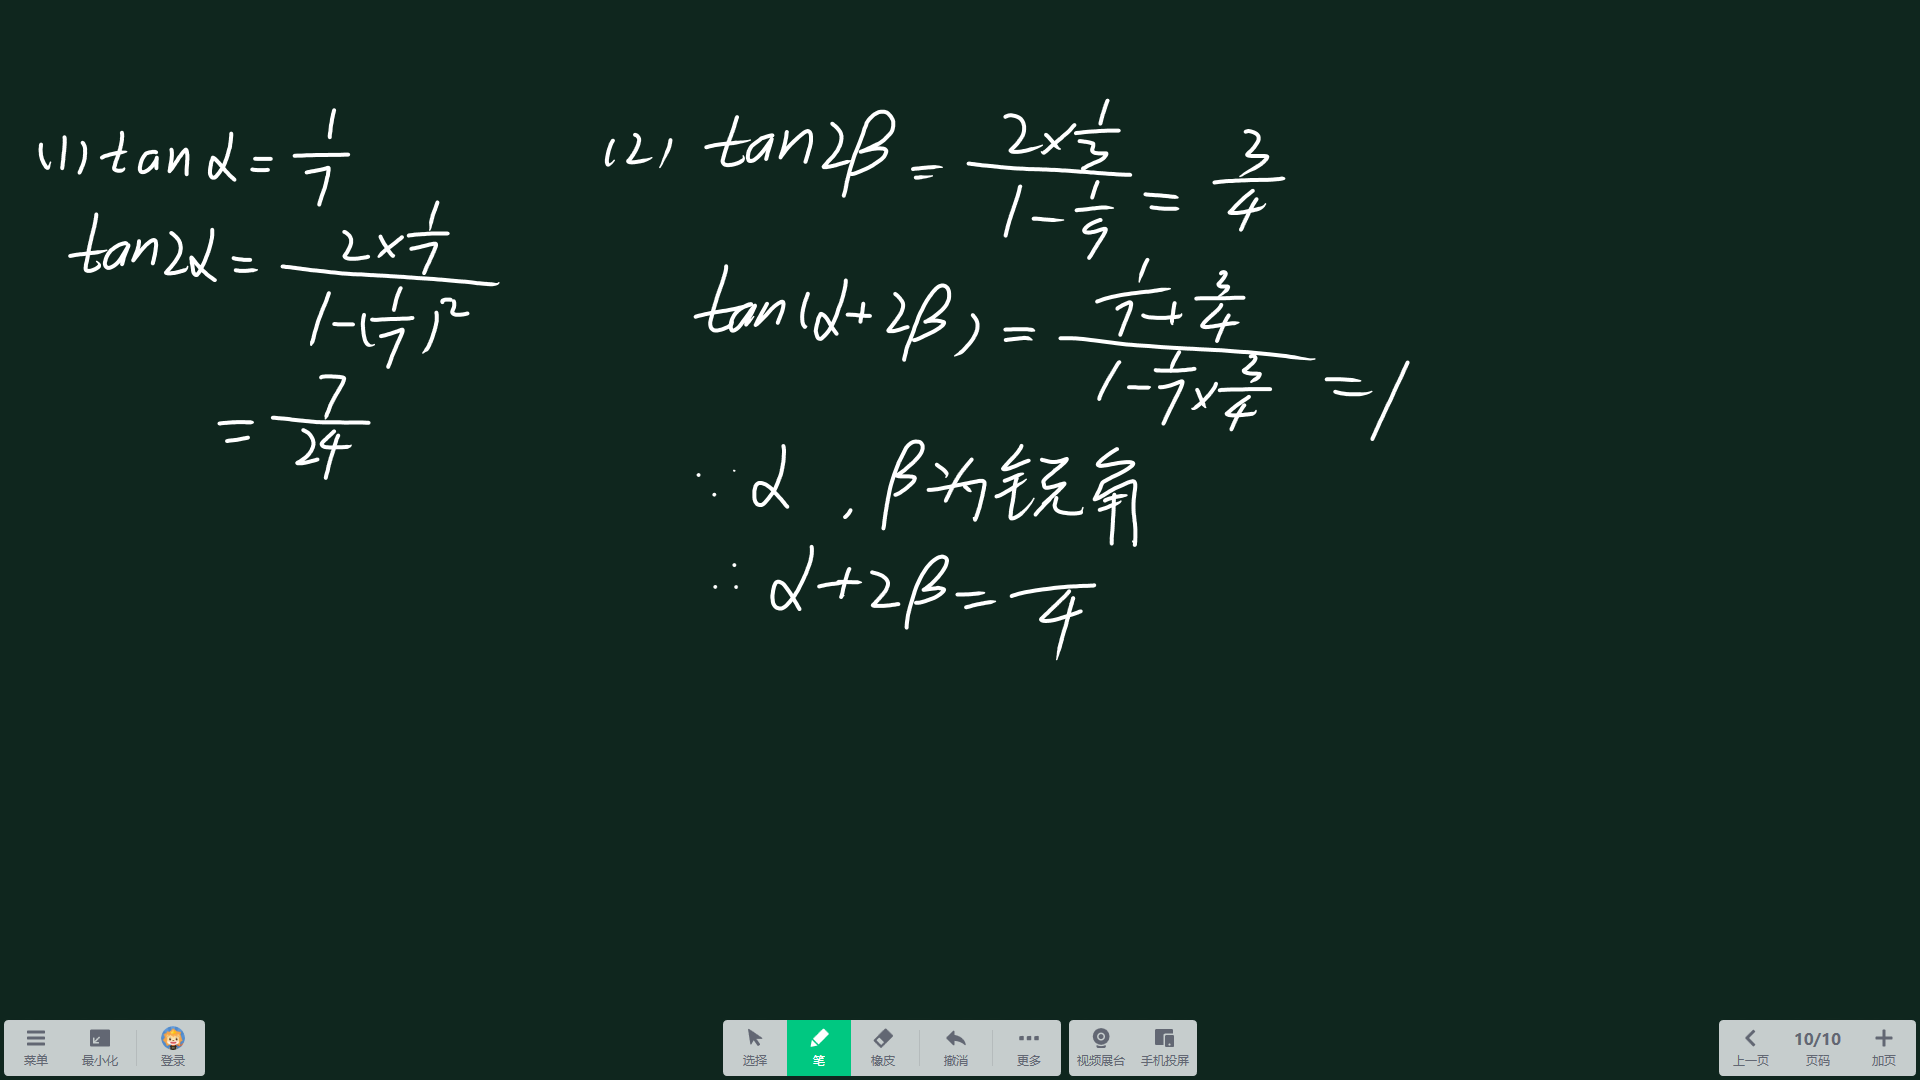 (1) tanα = 1/7
tan2α = (2×1/7)/(1-(1/7)²)
= 7/24
(2) tan2β = (2×1/3)/(1-1/9) = 3/4
tan(α+2β) = (1/7+3/4)/(1-1/7×3/4) = 1
∵ α , β为锐角
∴ α+2β = /4
菜单 最小化 登录
选择 笔 橡皮 撤消 更多
视频展台 手机投屏
上一页 10/10 页码 加页